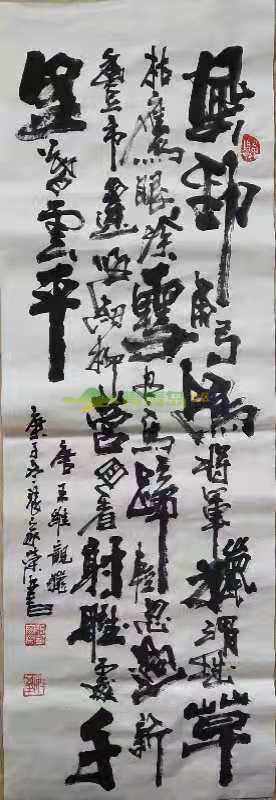 風勁角弓鳴將軍獵渭城草
枯鷹眼疾雪盡馬蹄輕忽過新
豐市還歸細柳營回看射雕處千
里暮雲平
唐王維觀獵
庚子冬家榮書